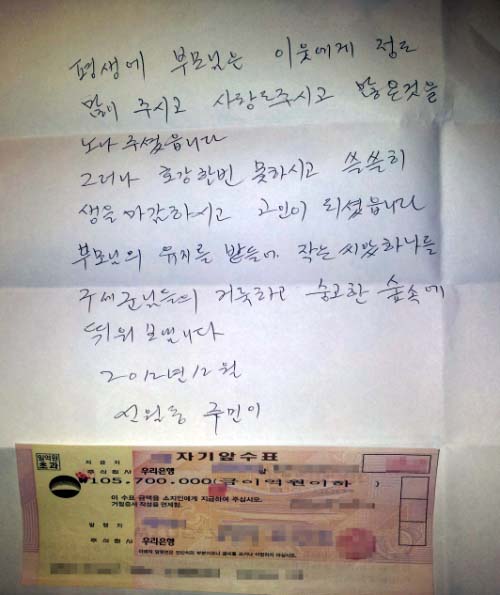 평생에 부모님은 이웃에게 정도
많이 주시고 사랑도주시고 많은것을
노나 주셨읍니다
그러나 호강한번 못하시고 쓸쓸히
생을마감하시고 고인이 되셨읍니다
부모님의 유지를 받들어 작은씨앗하나를
구세군님들의 거룩하고 숭고한 숲속에
띄워 보냅니다
2012년12월
신월동 주민이
일억원
초과
자기앞수표
지급지
주식회사 우리은행 앞
₩105,700,000(금이억원이하 )
이 수표 금액을 소지인에게 지급하여 주십시오.
거절증서 작성을 면제함.
발행지
주식회사 우리은행